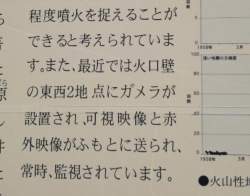 程度噴火を捉えることが
できると考えられていま
す。また、最近では火口壁
の東西2地点にガメラが
設置され、可視映像と赤
外映像がふもとに送られ、
常時、監視されています。
1958年
3月
1958年
3月
●火山性地